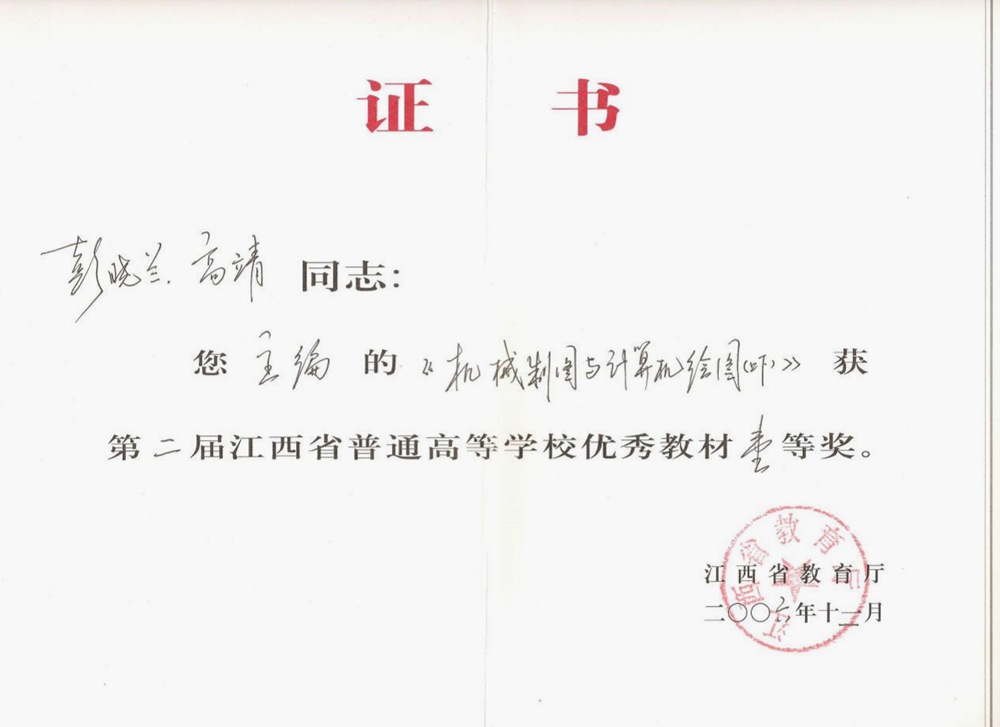 证 书
彭晓兰、高靖 同志:
您 主编 的《机械制图与计算机绘图(上下)》获
第二届江西省普通高等学校优秀教材壹等奖。
江西省教育厅
二〇〇六年十一月
江西省教育厅